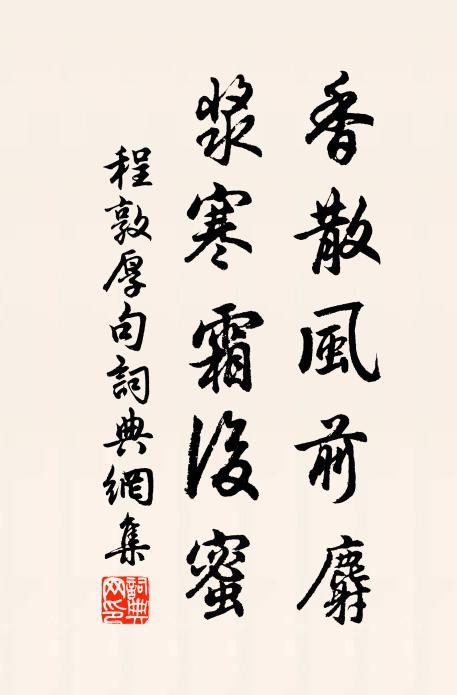 香散風前麝
漿寒霜後蜜
程敦厚句詞典網集
詞典網印